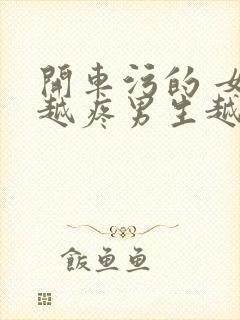 開車污的 女
越疼男生越
飯魚魚